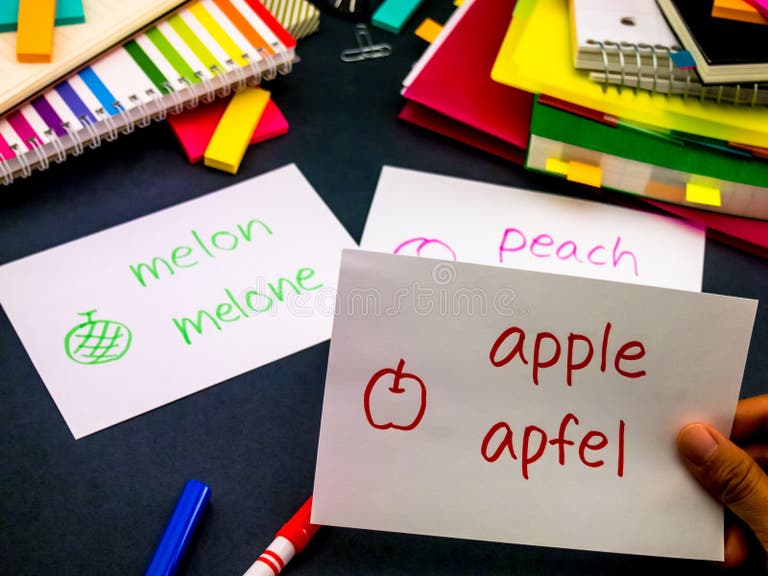 melon
melone
peach
apple
apfel
dreamstime